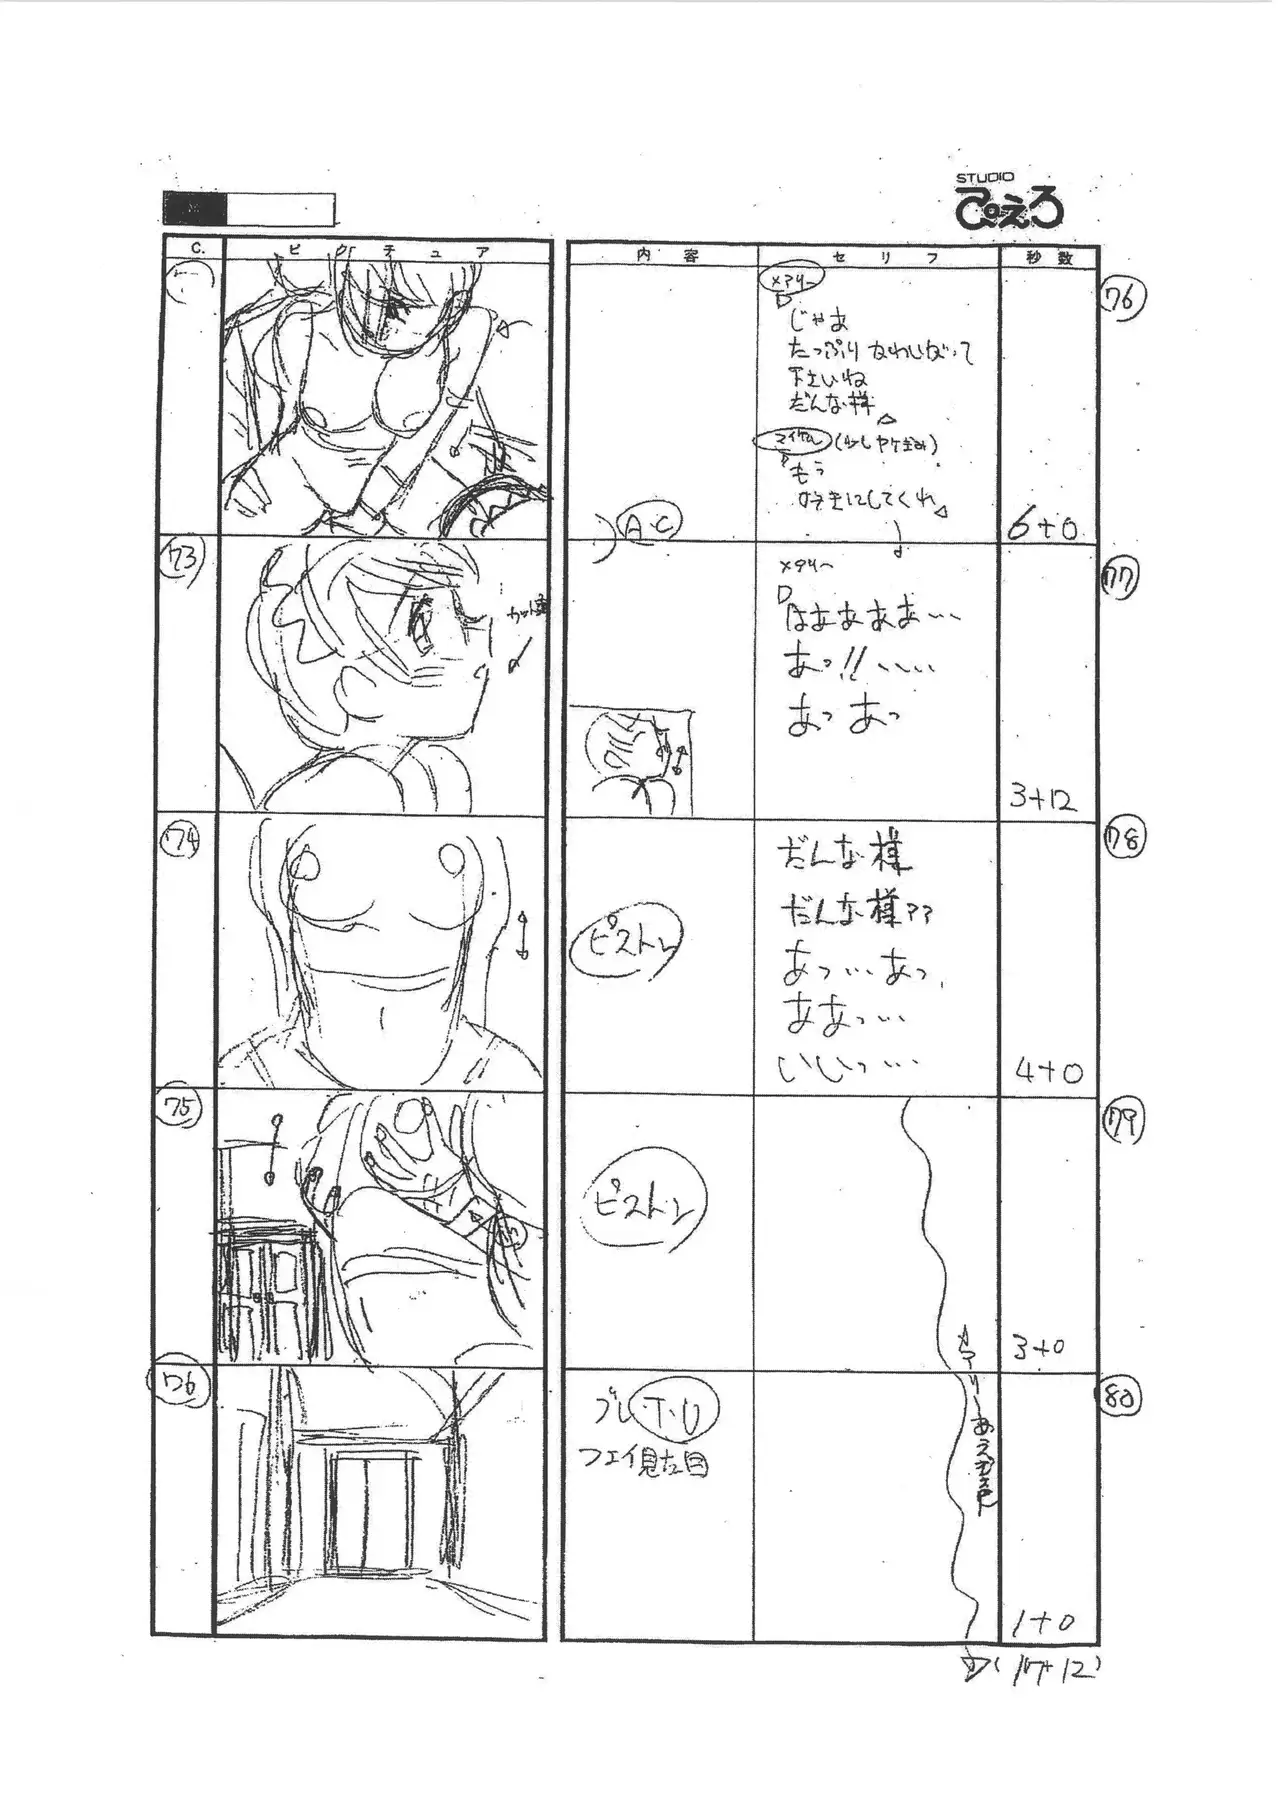 STUDIO
ぴえろ
C.
ピクチュア
内容
セリフ
秒数
メアリー
じゃあ
たっぷり
下さいね
だんな様
マイケル
もう
好きにしてくれ
A.C
6+0
76
73
メアリー
はあああああ…
あっ!!……
あっ あっ
3+12
77
74
ピストン
だんな様
だんな様??
あっ…あっ
ああっ…
いいっ…
4+0
78
75
ピストン
3+0
79
76
T.U
フェイ見た目
メアリーあえぎ声
1+0
80
(17+12)